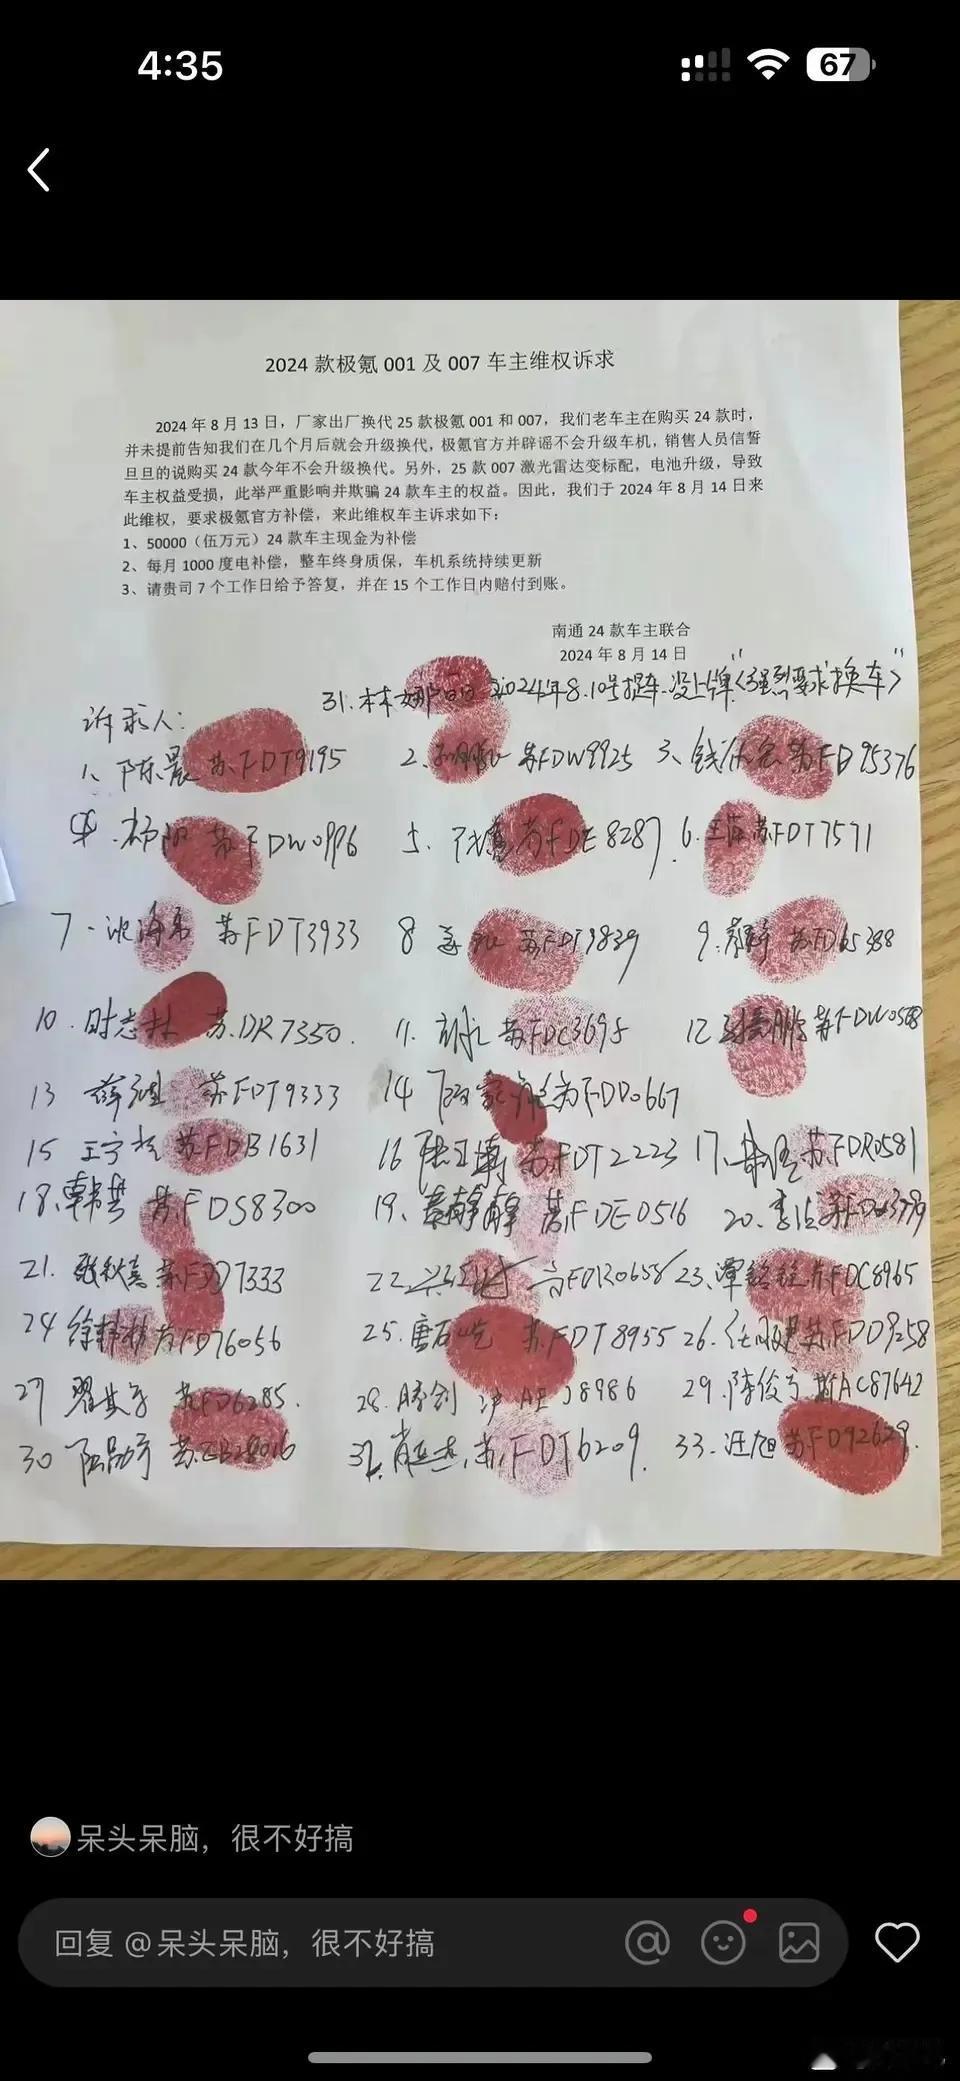 4:35
67
2024 款极氪 001 及 007 车主维权诉求
2024 年 8 月 13 日，厂家出厂换代 25 款极氪 001 和 007，我们老车主在购买 24 款时，
并未提前告知我们在几个月后就会升级换代，极氪官方并辟谣不会升级车机，销售人员信誓
旦旦的说购买 24 款今年不会升级换代。另外，25 款 007 激光雷达变标配，电池升级，导致
车主权益受损，此举严重影响并欺骗 24 款车主的权益。因此，我们于 2024 年 8 月 14 日来
此维权，要求极氪官方补偿，来此维权车主诉求如下：
1、50000（伍万元）24 款车主现金为补偿
2、每月 1000 度电补偿，整车终身质保，车机系统持续更新
3、请贵司 7 个工作日给予答复，并在 15 个工作日内赔付到账。
南通 24 款车主联合
2024 年 8 月 14 日
31. 林娜 2024年8.10号提车 没上牌"<强烈要求换车>"
诉求人：
1、陈晨 苏FDT9195 2. 苏FDW9925 3、钱 苏FD95376
4. 苏FDW0996 5. 苏FDE8287 6. 王萍 苏FDT7571
7. 沈海 苏FDT3933 8 姜 苏FDT9839 9. 苏FD65388
10. 时志 苏.DR7350. 11. 苏FDC3695 12 鹏 苏FDW0558
13 薛 苏FDT9333 14 陈家 苏FDD0667
15 王宇 苏FDB1631 16 苏FDT2223 17. 苏FDR0581
18. 韩 苏FDS8300 19、秦静静 苏FDE0516 20. 李
21. 张秋 苏FDD7333 22 FDR0658 23、谭铭 苏FDC8965
24 徐 苏FD76056 25. 唐 苏FDT8955 26. 任 苏FDD9258
27 翟 苏FD6285. 28. 滕剑 沪 J8986 29. 陈俊 AC87642
30 陈 苏 32. 肖 苏FDT6209. 33. 汪旭 苏FD92629.
呆头呆脑，很不好搞
回复 @呆头呆脑，很不好搞